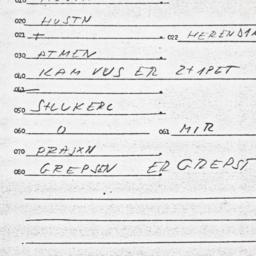 020 HUSTN
021 + 022 HEREND1N
030 ATMEN
040 KAM VUS ER 2+1PET
050 StLUKERC
060 O 061 MIR
070 PRAJXN
080 GREPSEN ER GREPST